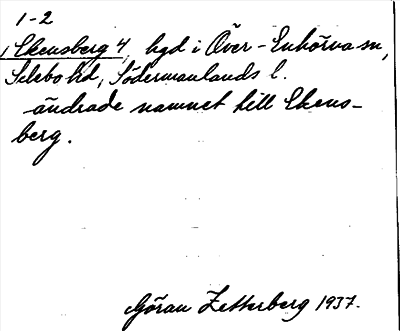 1-2
Ekensberg 4, hgd i Över-Enhörva sn,
Selebo hd, Södermanlands l.
ändrade namnet till Ekens-
berg.
Göran Zetterberg 1937.